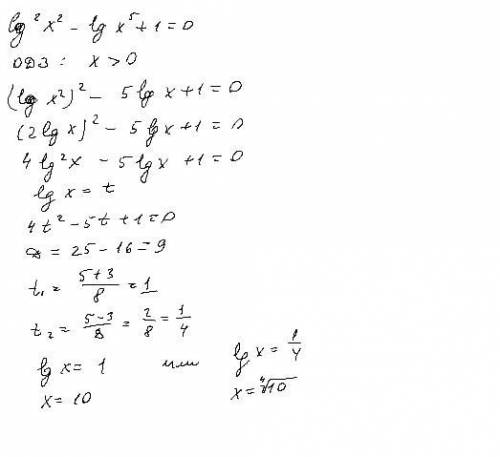 lg²x² - lg x⁵ + 1 = 0
ОДЗ: x > 0
(lg x²)² - 5 lg x + 1 = 0
(2 lg x)² - 5 lg x + 1 = 0
4 lg²x - 5 lg x + 1 = 0
lg x = t
4t² - 5t + 1 = 0
D = 25 - 16 = 9
t₁ = (5+3)/8 = 1
t₂ = (5-3)/8 = 2/8 = 1/4
lg x = 1 или lg x = 1/4
x = 10 x = ⁴√10